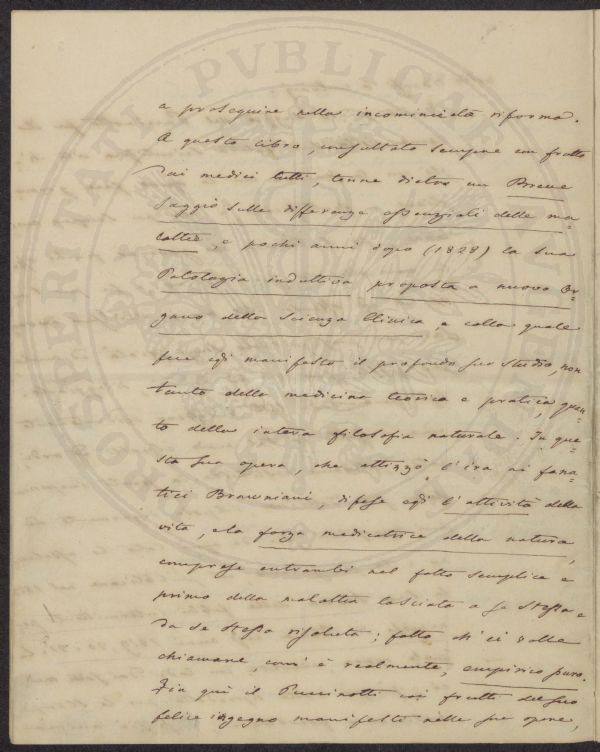 a proseguire nella incominciata riforma.
A questo libro, consultato sempre con frutto
dai medici tutti, tenne dietro un Breve
Saggio sulle differenze essenziali delle ma=
lattie, e pochi anni dopo (1828) la sua
Patologia induttiva proposta a nuovo Or=
gano della Scienza Clinica, e colla quale
fece egli manifesto il profondo suo studio, non
tanto della medicina teorica e pratica, quan=
to della intera filosofia naturale. In que=
sta sua opera, che attizzò l'ira ai fana=
tici Browniani, difese egli l'attività della
vita, e la forza medicatrice della natura,
comprese entrambi nel fatto semplice e
primo della malattia lasciata a se stessa e
da se stessa risoluta; fatto ch'ei volle
chiamare, com'è realmente, empirico puro.
Fin quì il Puccinotti coi frutti del suo
felice ingegno manifesti nelle sue opere,
PVBLICAE
PROSPERITATI